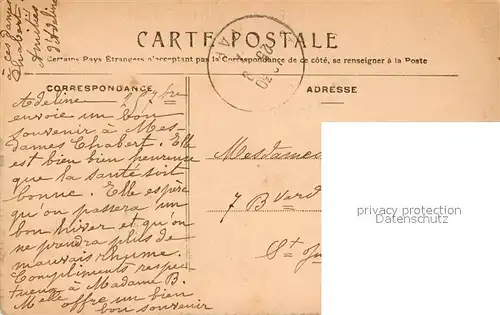 à ces dames
Chabert
Amitiés
d'Adeline
CARTE POSTALE
Certains Pays Étrangers n'acceptant pas la Correspondance de ce côté, se renseigner à la Poste
CORRESPONDANCE
ADRESSE
Adeline 25 7bre
envoie un bon
souvenir à Mes-
dames Chabert. Elle
est bien bien heureuse
que la santé soit
bonne. Elle espère
qu'on passera un
bon hiver et qu'on
ne prendra plus de
mauvais rhume.
Compliments respec-
tueux à Madame B.
Melle offre un bien
bon souvenir
Mesdames
7 Bvard
St
privacy protection
Datenschutz